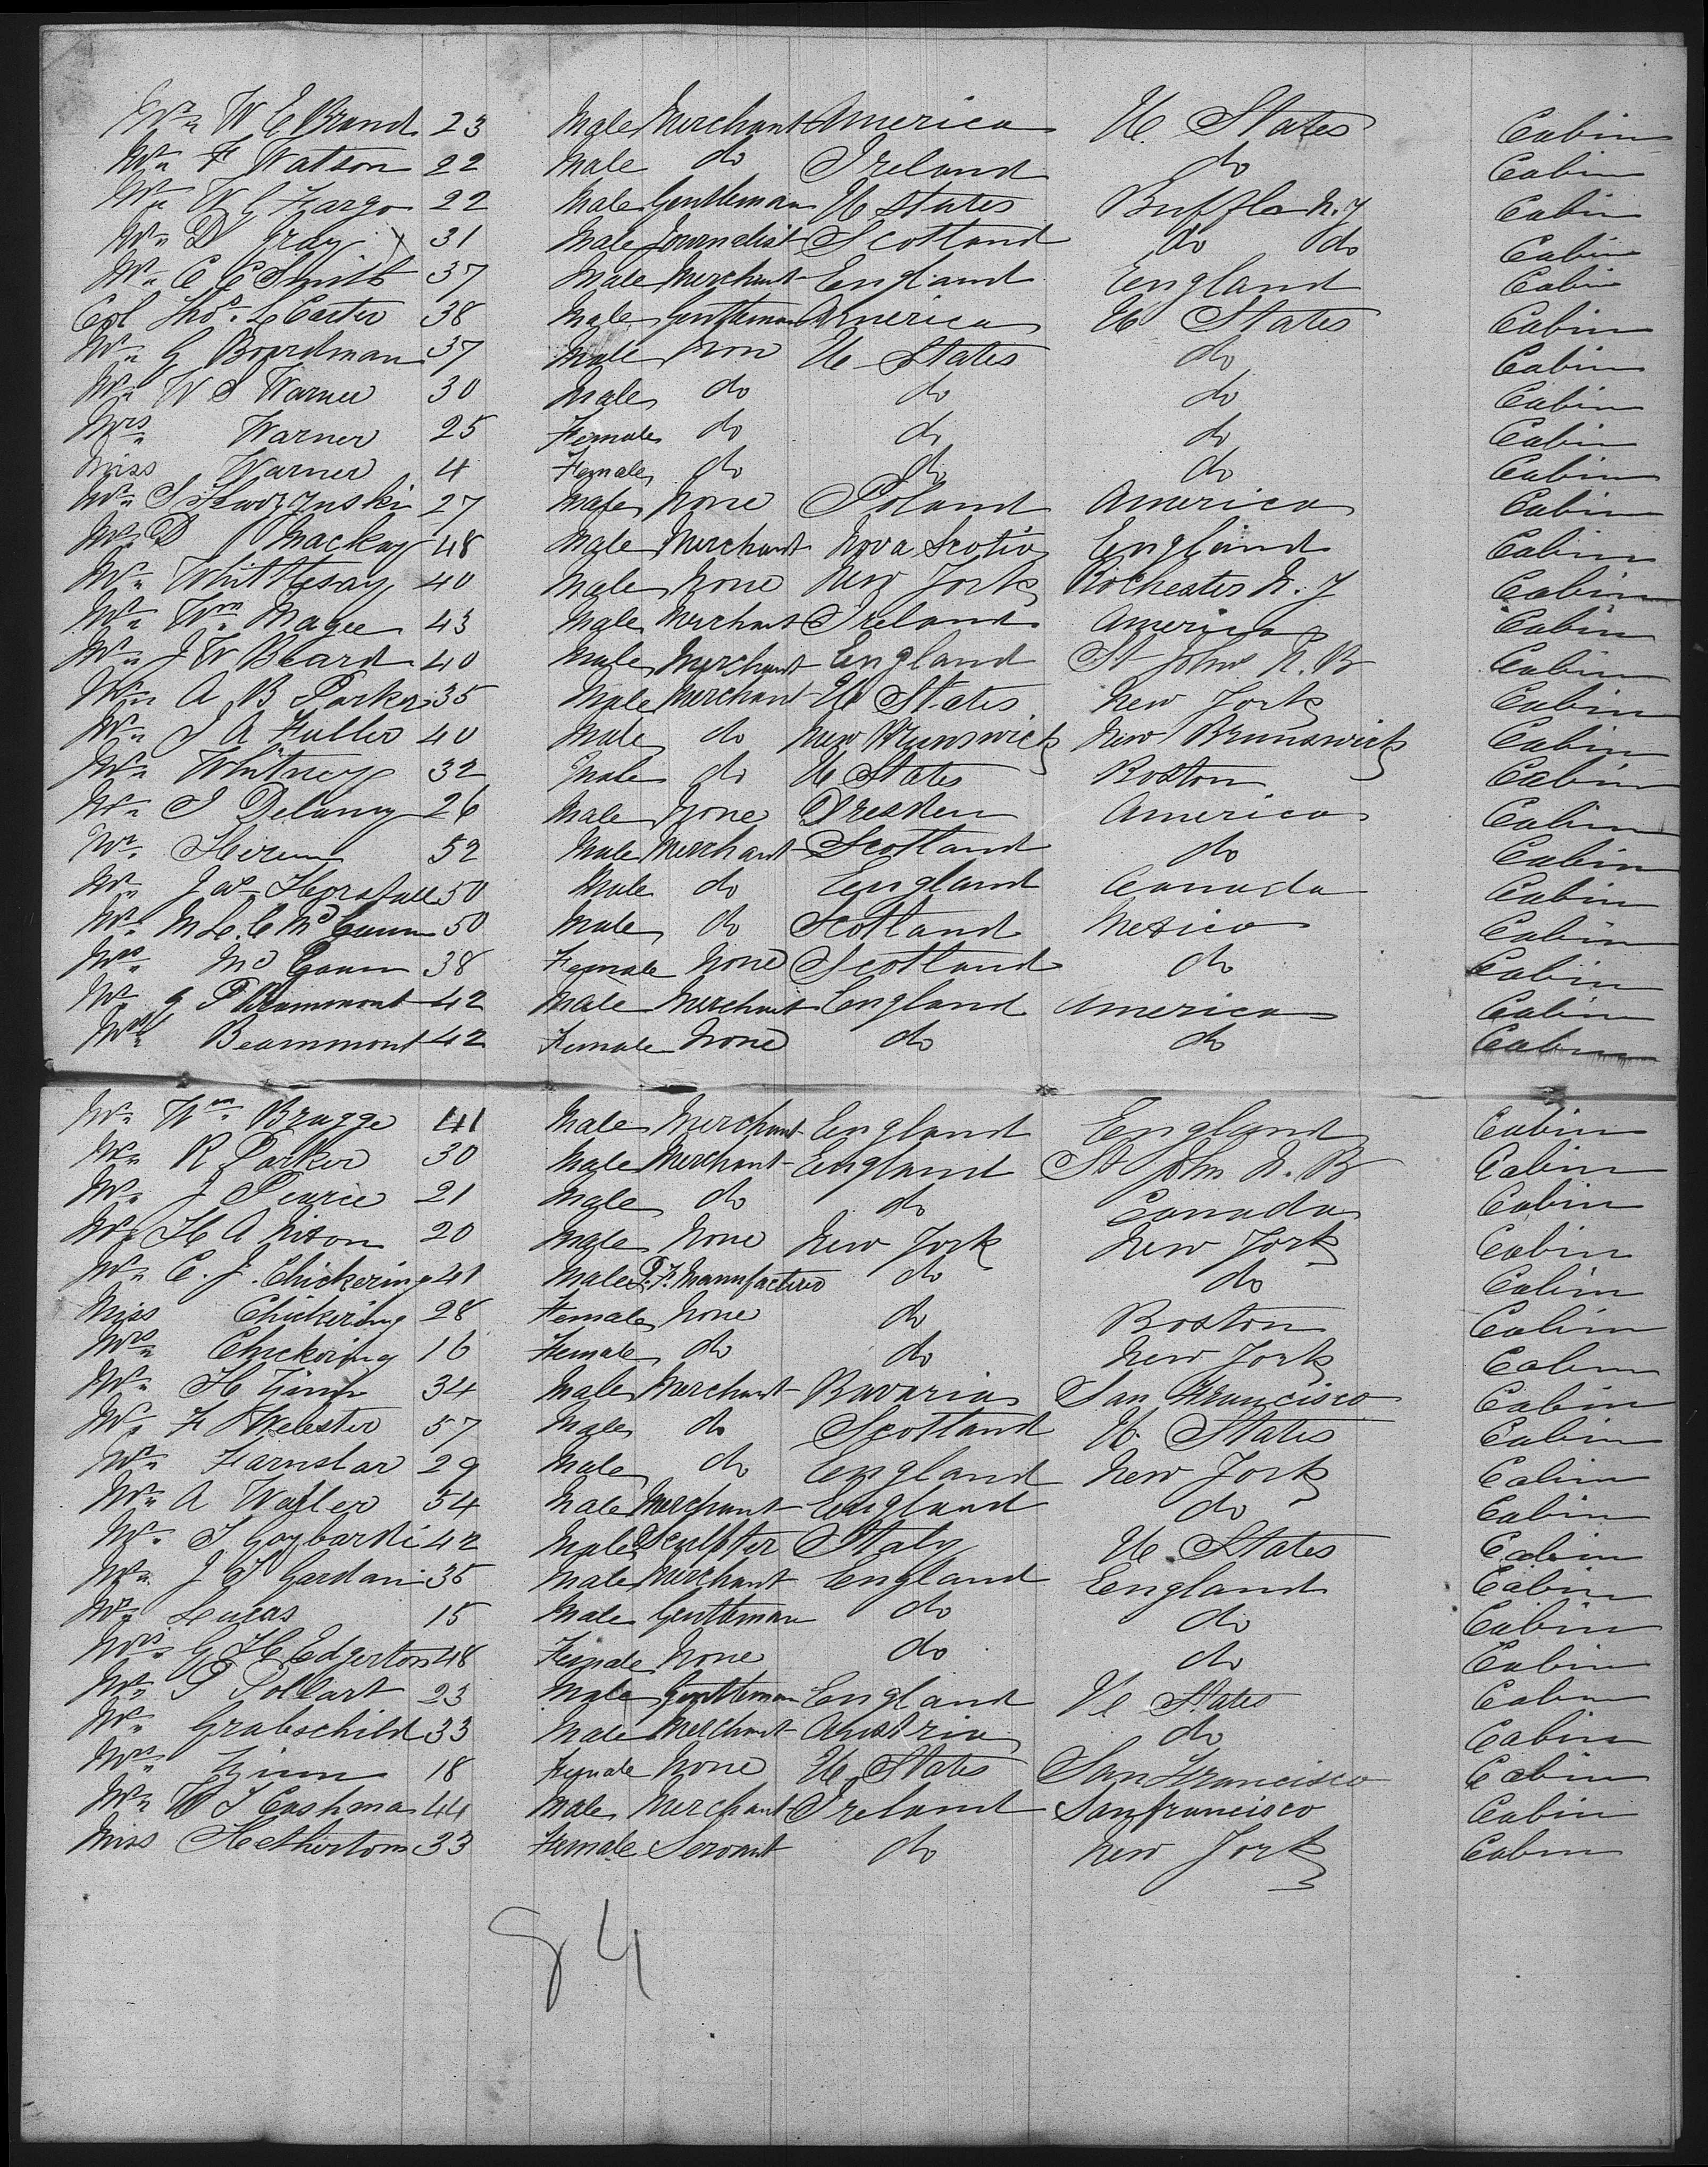 Mr W E Brand 23 Male Merchant America U. States Cabin
Mr F Watson 22 Male do Ireland do Cabin
Mr W G Fargo 22 Male Gentleman U States Bufflo N.Y Cabin
Mr D Gray 31 Male Journalist Scotland do do Cabin
Mr C C Smith 37 Male Merchant England England Cabin
Col Thos. L Carter 38 Male Gentleman America U States Cabin
Mr G Boardman 37 Male non U States do Cabin
Mr W S Warner 30 Male do do do Cabin
Mrs Warner 25 Female do do do Cabin
Miss Warner 4 Female do do do Cabin
Mr 27 Male None Poland America Cabin
Mr D Mackay 48 Male Merchant Nova Scotia England Cabin
Mr Whittlesay 40 Male None New York Rochester N.Y Cabin
Mr Wm Magee 43 Male Merchant Ireland America Cabin
Mr J W Beard 40 Male Merchant England St John N.B Cabin
Mr A B Parker 35 Male Merchant U States New York Cabin
Mr J A Fuller 40 Male do New Brunswick New Brunswick Cabin
Mr Whitney 32 Male do U States Boston Cabin
Mr J Delamy 26 Male None Dresden America Cabin
Mr 52 Male Merchant Scotland do Cabin
Mr Jas Horsfall 50 Male do England Canada Cabin
Mr M L. C Mc 50 Male do Scotland Mexico Cabin
Mrs Mc 38 Female None Scotland do Cabin
Mr G P Beammont 42 Male Merchant England America Cabin
Mrs Beammont 42 Female None do do Cabin
Mr Wm Bragge 41 Male Merchant England England Cabin
Mr R Parker 30 Male Merchant England St John N.B Cabin
Mr J Pearce 21 Male do do Canada Cabin
Mr H A Nixon 20 Male None New York New York Cabin
Mr C. F. Chickering 41 Male P.F. Manufacturer do do Cabin
Miss Chickering 28 Female None do Boston Cabin
Mrs Chickering 16 Female do do New York Cabin
Mr H 34 Male Merchant Bavaria San Francisco Cabin
Mr F Webster 57 Male do Scotland U. States Cabin
Mr Farnslar 29 Male do England New York Cabin
Mr A Waller 54 Male Merchant England do Cabin
Mr J Gaybardi 42 Male Sculpter Italy U. States Cabin
Mr J Gardani 35 Male Merchant England England Cabin
Mr Lucas 15 Male Gentleman do do Cabin
Mrs G H Edgerton 48 Female None do do Cabin
Mr P Pollart 23 Male Gentleman England U States Cabin
Mr Grabschild 33 Male Merchant Austria do Cabin
Mrs 18 Female None U. States San Francisco Cabin
Mr W J Cashman 44 Male Merchant Ireland San francisco Cabin
Miss Hetherton 33 Female Servant do New York Cabin
84